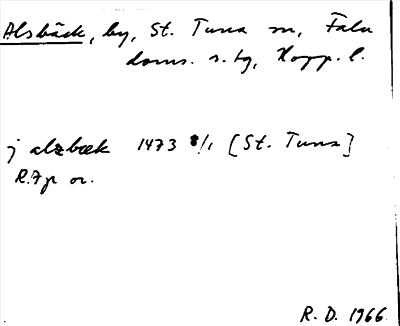 Alsbäck, by, St. Tuna sn, Falu
doms. s. tg, Kopp. l.
j alzbæk 1473 8/1 [St. Tuna]
R.Ap or.
R. D. 1966